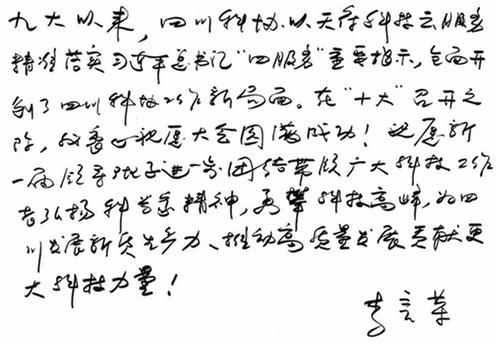 九大以来，四川科协以天府科技云服务
精准落实习近平总书记“四服务”重要指示，全面开
创了四川科协工作新局面。在“十大”召开之
际，我衷心祝愿大会圆满成功！祝愿新
一届领导班子进一步团结带领广大科技工作
者弘扬科学家精神，勇攀科技高峰，为四
川发展新质生产力、推动高质量发展贡献更
大科技力量！
李言荣